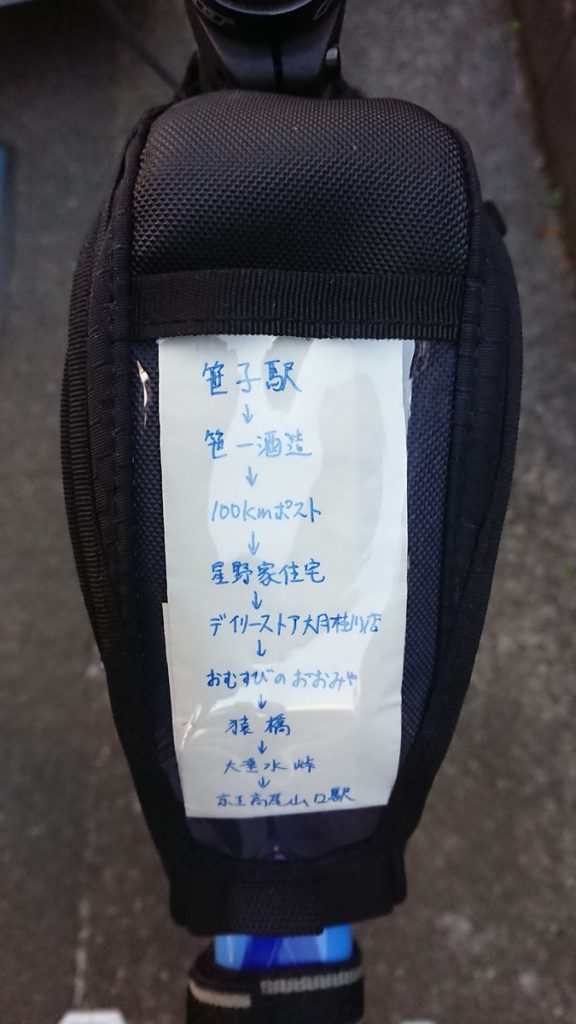 笹子駅
↓
笹一酒造
↓
100kmポスト
↓
星野家住宅
↓
デイリーストア大月桂川店
↓
おむすびのおおみや
↓
猿橋
↓
大垂水峠
↓
京王高尾山口駅